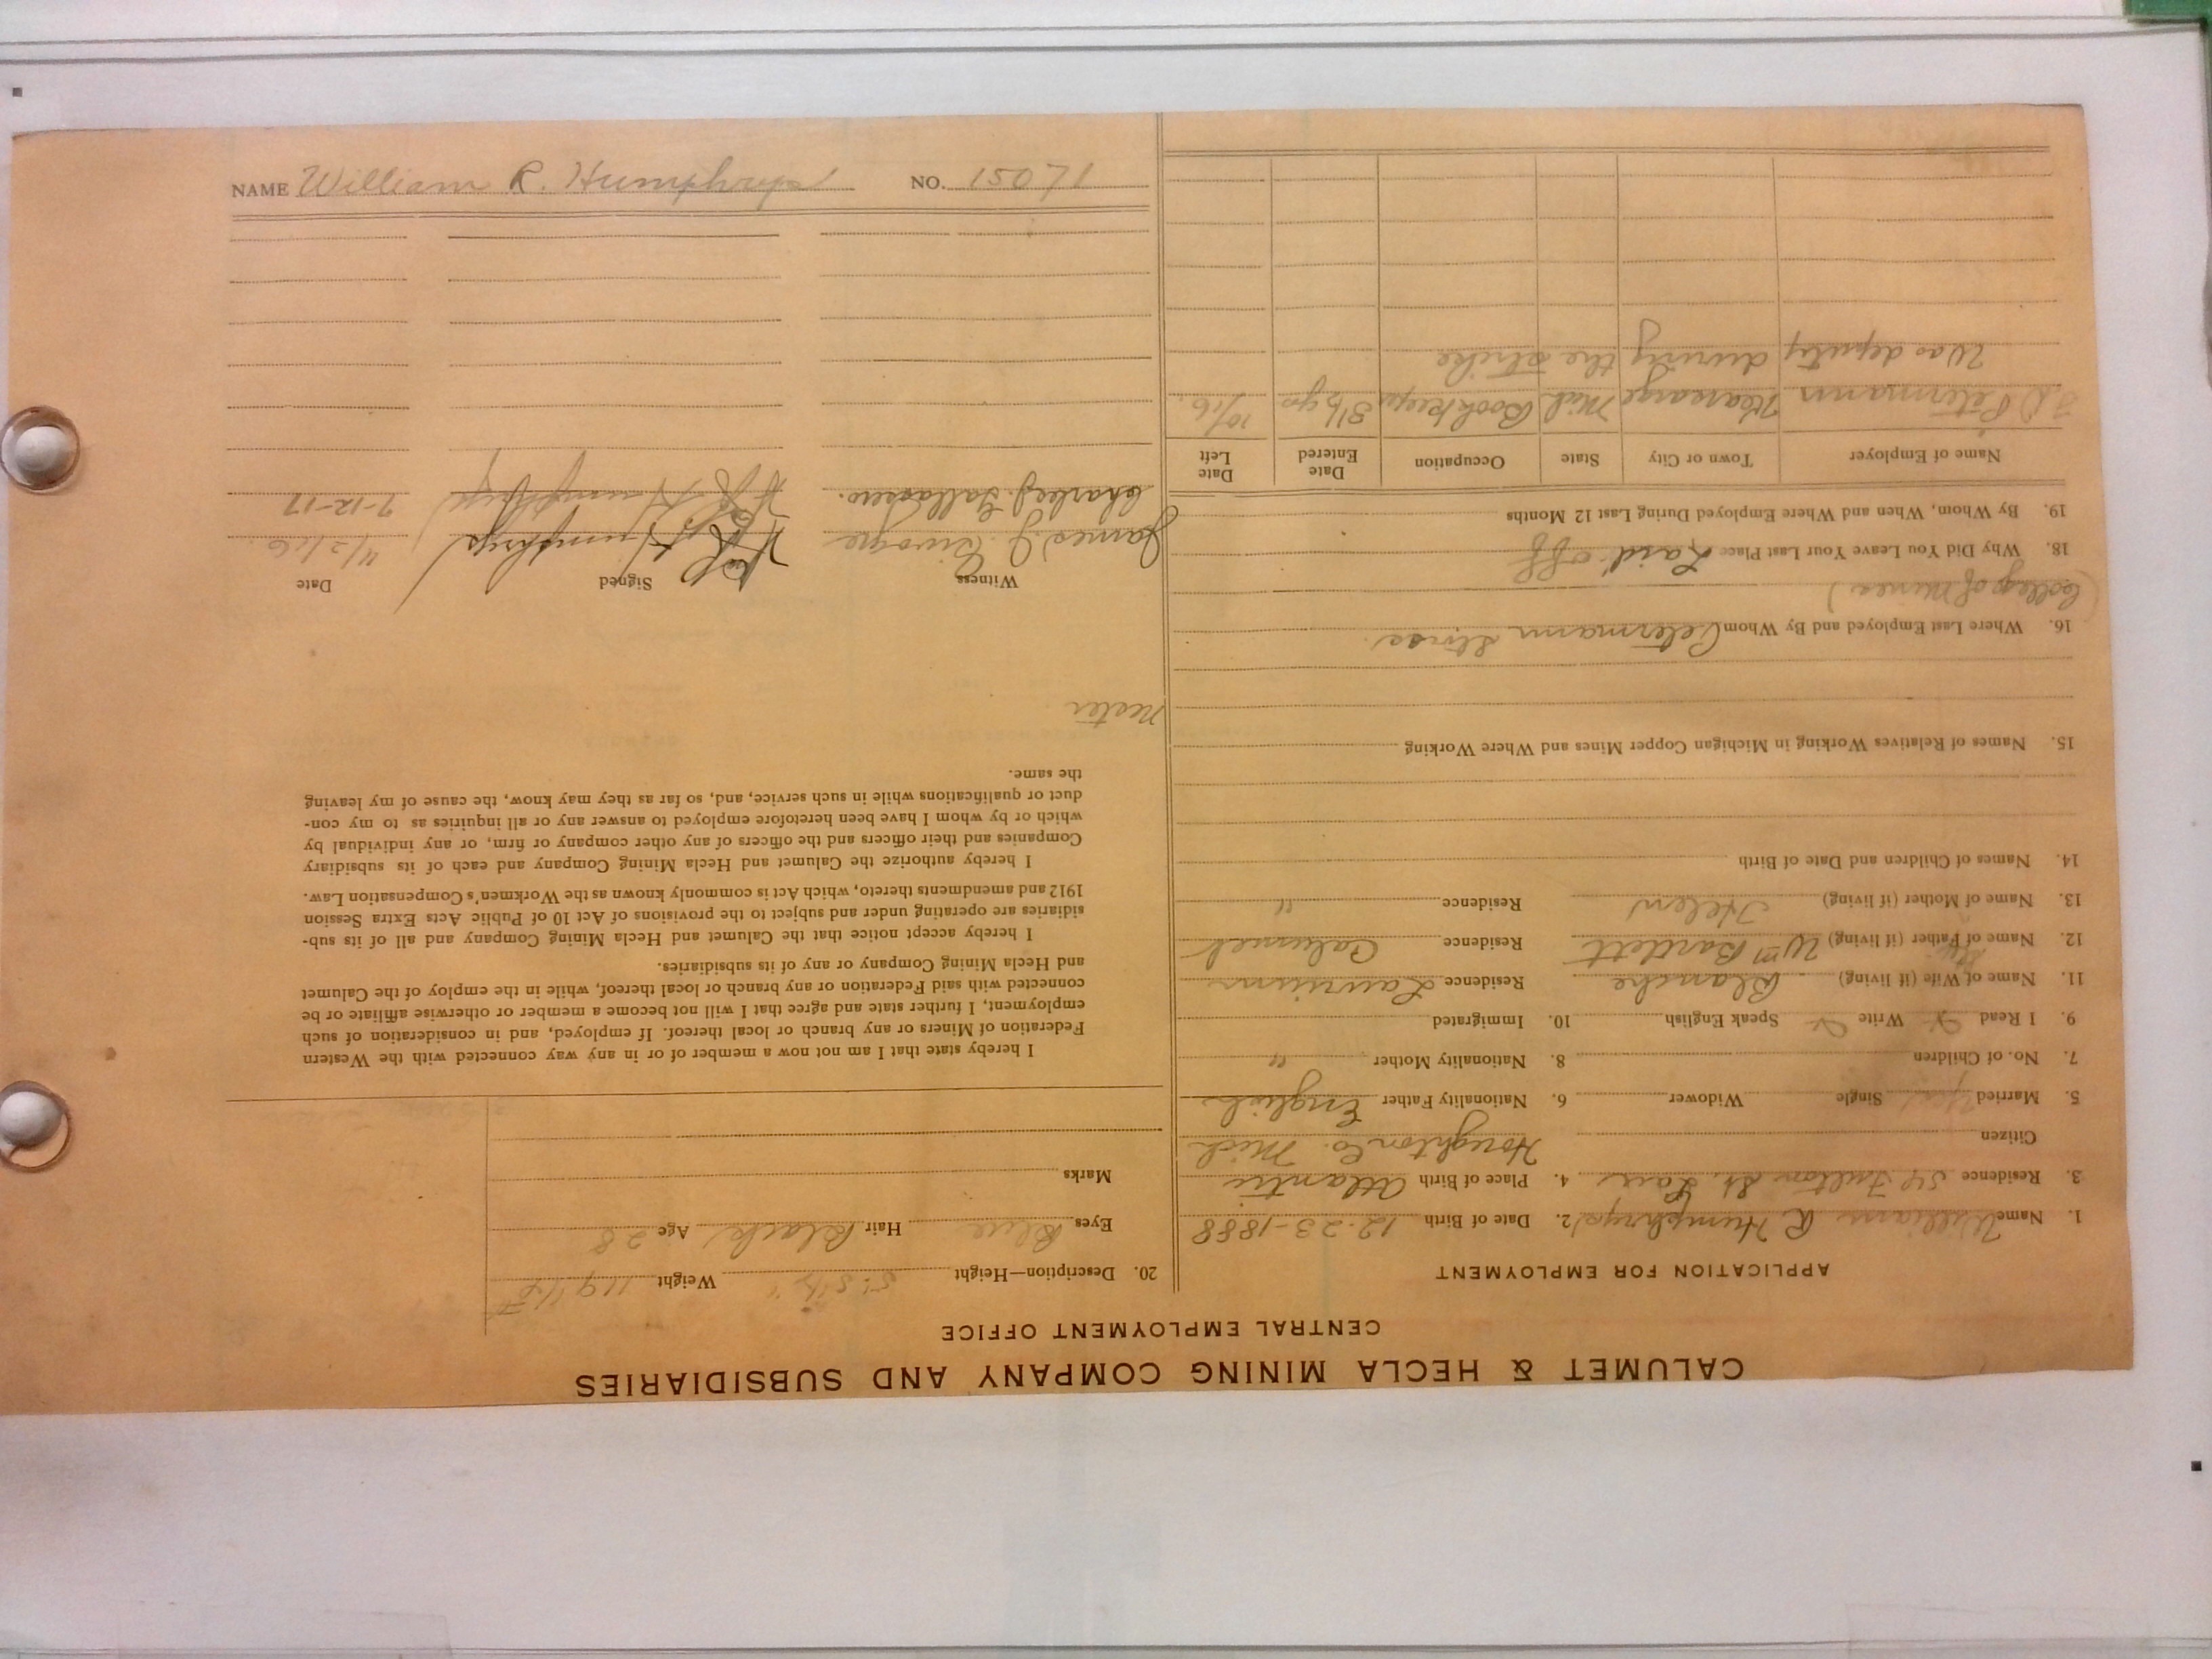 CALUMET & HECLA MINING COMPANY AND SUBSIDIARIES
CENTRAL EMPLOYMENT OFFICE
APPLICATION FOR EMPLOYMENT
1. Name William R Humphrys 2. Date of Birth 12-23-1888
3. Residence Fulton St. Lau 4. Place of Birth Atlantic
Houghton Co. Mich
Citizen
5. Married Yes Single Widower 6. Nationality Father English
7. No. of Children 8. Nationality Mother "
9. I Read Write Speak English 10. Immigrated
11. Name of Wife (if living) Blanche Residence Laurium
12. Name of Father (if living) Wm Bartlett Residence Calumet
13. Name of Mother (if living) Helen Residence "
14. Names of Children and Date of Birth
15. Names of Relatives Working in Michigan Copper Mines and Where Working
16. Where Last Employed and By Whom Petermann Store
(College of Mines)
18. Why Did You Leave Your Last Place Laid off
19. By Whom, When and Where Employed During Last 12 Months
Name of Employer Town or City State Occupation Date Entered Date Left
Petermann Kearsarge Mich Bookkeeper 3 1/2 yrs 10/16.
Was deputy during the strike
20. Description—Height 5' 5 1/2" Weight 119
Eyes Blue Hair Black Age 28
Marks
I hereby state that I am not now a member of or in any way connected with the Western
Federation of Miners or any branch or local thereof. If employed, and in consideration of such
employment, I further state and agree that I will not become a member or otherwise affiliate or be
connected with said Federation or any branch or local thereof, while in the employ of the Calumet
and Hecla Mining Company or any of its subsidiaries.
I hereby accept notice that the Calumet and Hecla Mining Company and all of its sub-
sidiaries are operating under and subject to the provisions of Act 10 of Public Acts Extra Session
1912 and amendments thereto, which Act is commonly known as the Workmen's Compensation Law.
I hereby authorize the Calumet and Hecla Mining Company and each of its subsidiary
Companies and their officers and the officers of any other company or firm, or any individual by
which or by whom I have been heretofore employed to answer any or all inquiries as to my con-
duct or qualifications while in such service, and, so far as they may know, the cause of my leaving
the same.
Witness Signed Date
James J. W R Humphrys 11/2/16.
Charles J. W R Humphrys 7-12-17
NAME William R. Humphrys NO. 15071